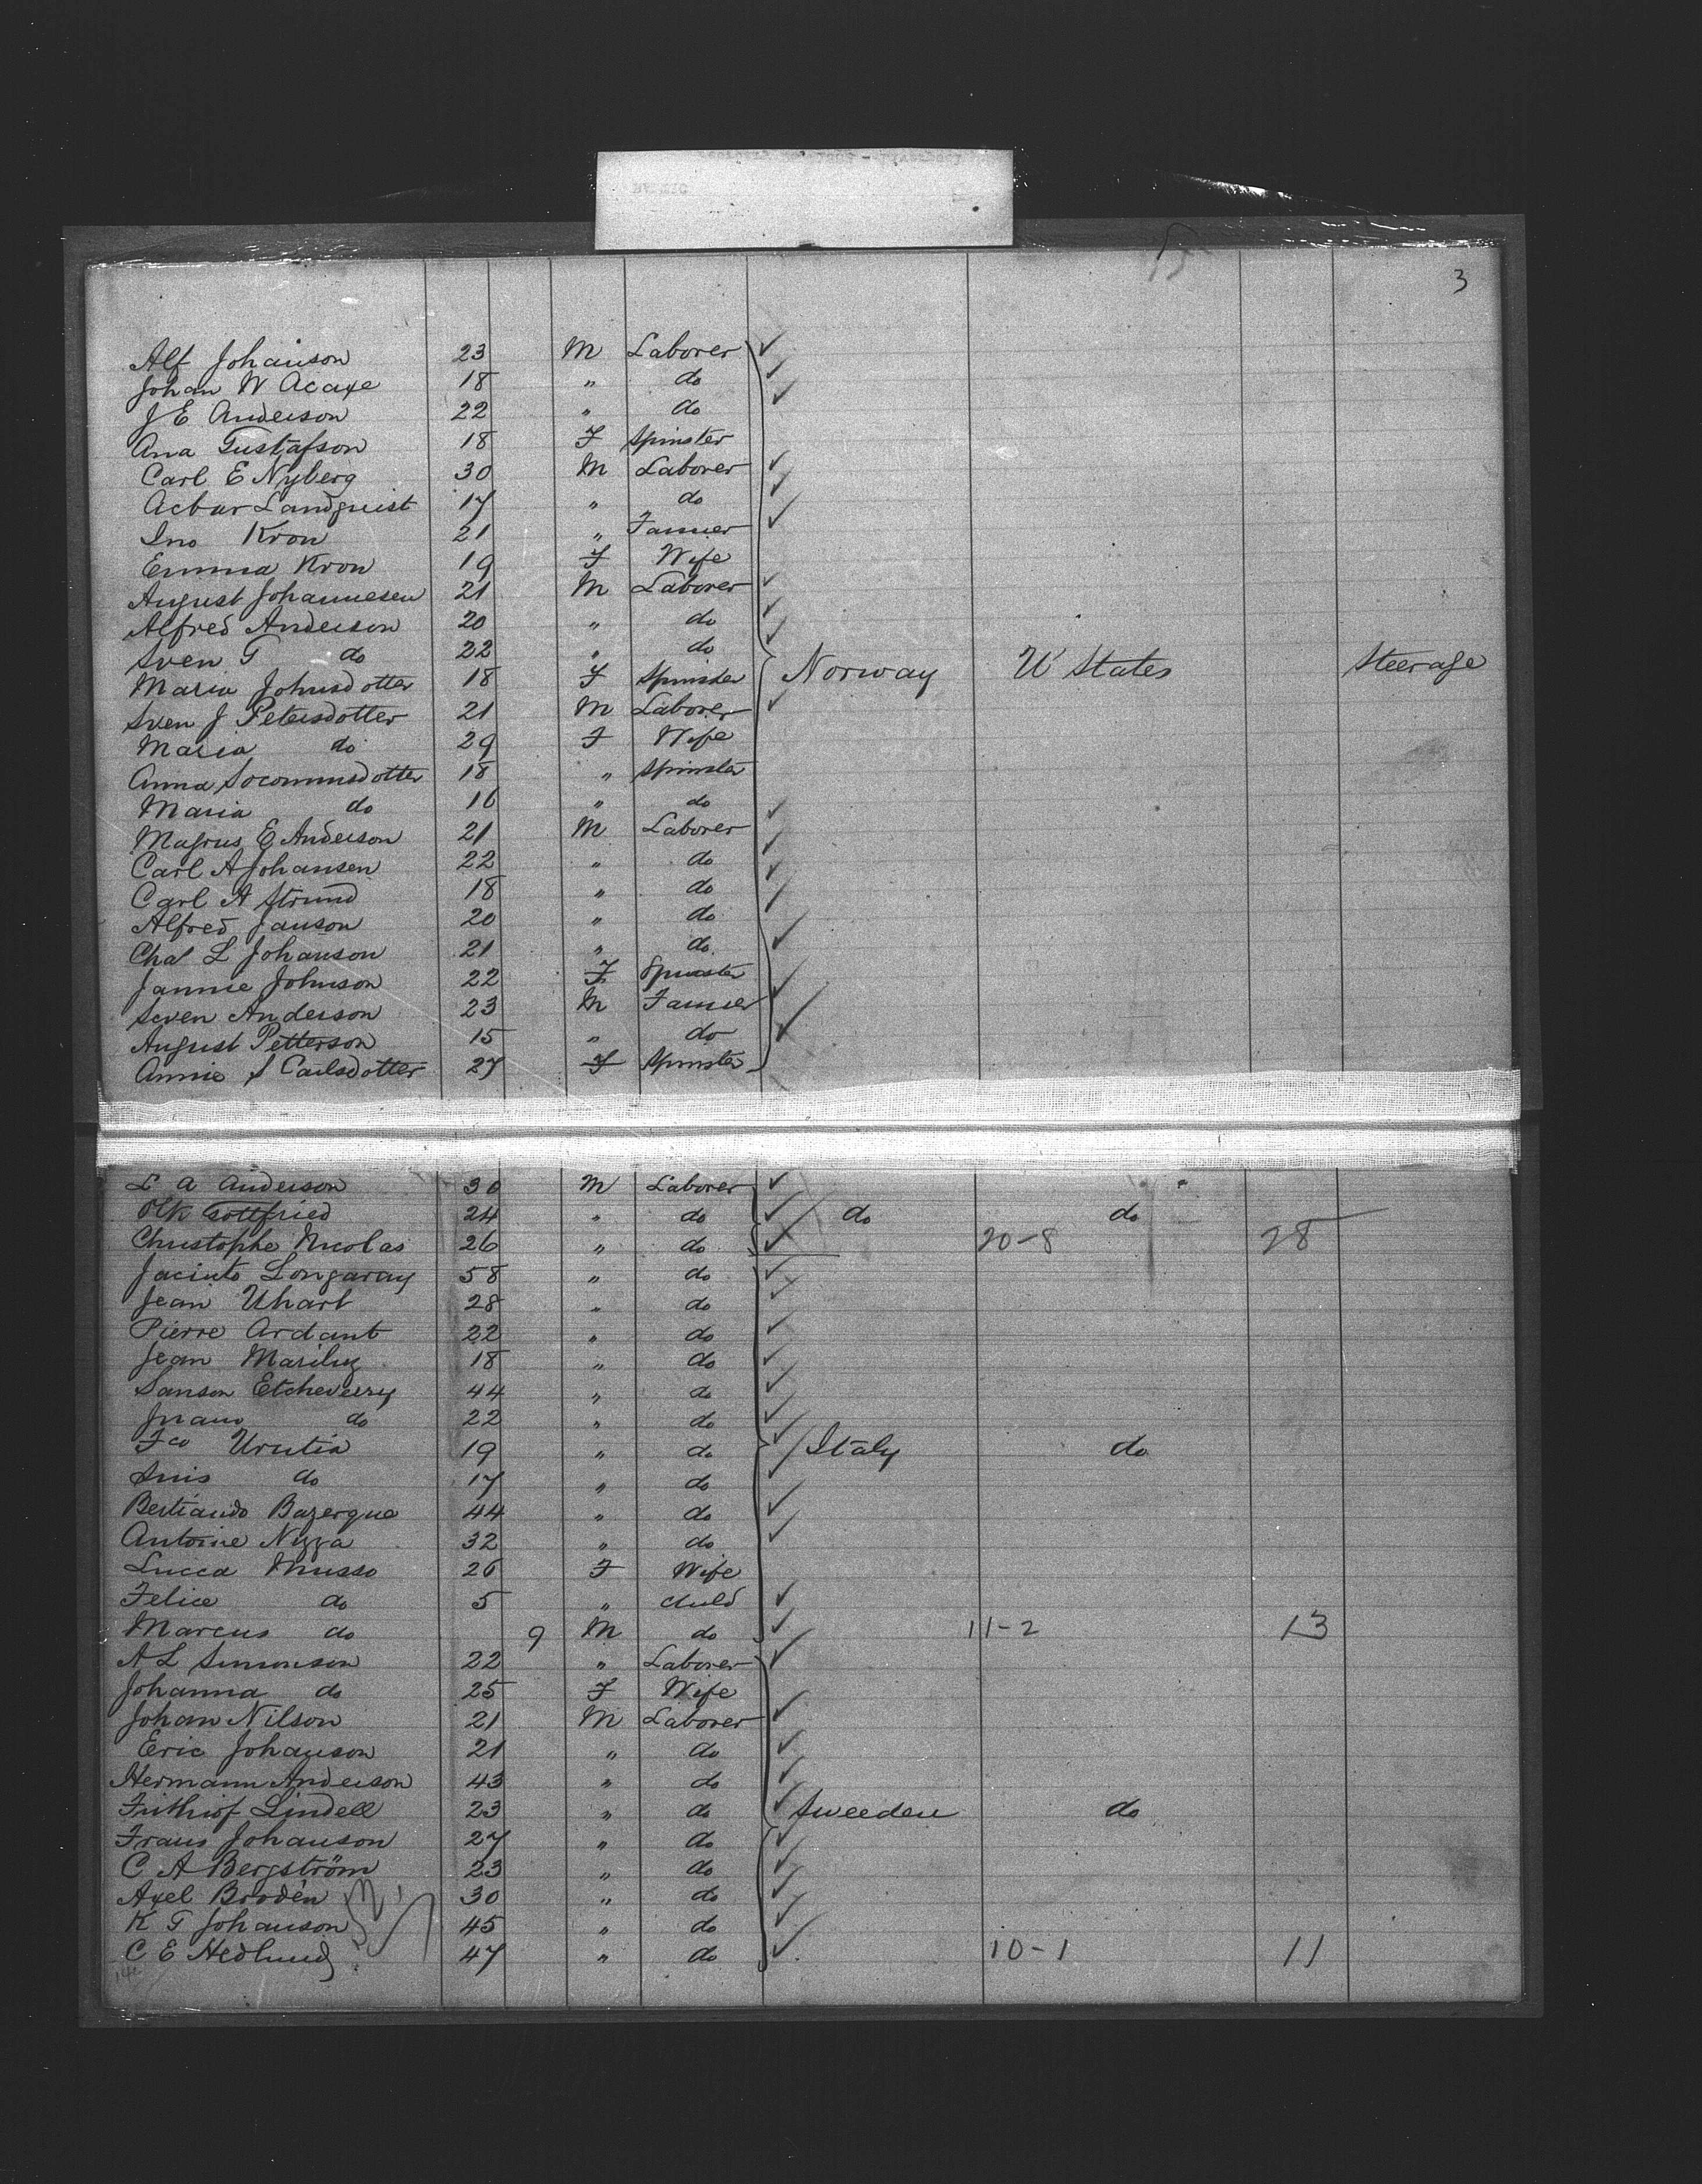 3
Alf Johanson 23 M Laborer
Johan W Acaxe 18 " do
J E Anderson 22 " do
Ana Gustafson 18 F Spinster
Carl E Nyberg 30 M Laborer
Acbur Landquist 17 " do
Jno Kron 21 " Farmer
Emma Kron 19 F Wife
August Johannesen 21 M Laborer
Alfred Anderson 20 " do
Sven G do 22 " do
Maria Johnsdotter 18 F Spinster Norway U States Steerage
Sven J Petersdotter 21 M Laborer
Maria do 29 F Wife
Anna 18 " Spinster
Maria do 16 " do
Magnus E Anderson 21 M Laborer
Carl A Johansen 22 " do
Carl A Strund 18 " do
Alfred Janson 20 " do
Chal L Johanson 21 " do
Jannie Johnson 22 F Spinster
Seven Anderson 23 M Farmer
August Petterson 15 " do
Annie S Carlsdotter 27 F Spinster
L A Anderson 30 M Laborer
Olk Gottfried 24 " do do do
Christophe Nicolas 26 " do 20-8 28
Jacinto Longaray 58 " do
Jean Uhart 28 " do
Pierre Ardant 22 " do
Jean Mariluz 18 " do
Sanson Etcheverry 44 " do
Juan do 22 " do
Fco Urutia 19 " do Italy do
Luis do 17 " do
Bertiando Bazerque 44 " do
Antoine Nizza 32 " do
Lucca Musso 26 F Wife
Felice do 5 " child
Marcus do 9 M do 11-2 13
A L Simonson 22 " Laborer
Johanna do 25 F Wife
Johan Nilson 21 M Laborer
Eric Johanson 21 " do
Hermann Anderson 43 " do
Frithiof Lindell 23 " do Sweeden do
Frans Johanson 27 " do
C A Bergström 23 " do
Axel Brodén 30 " do
K G Johanson 45 " do
C E Hedlund 47 " do 10-1 11